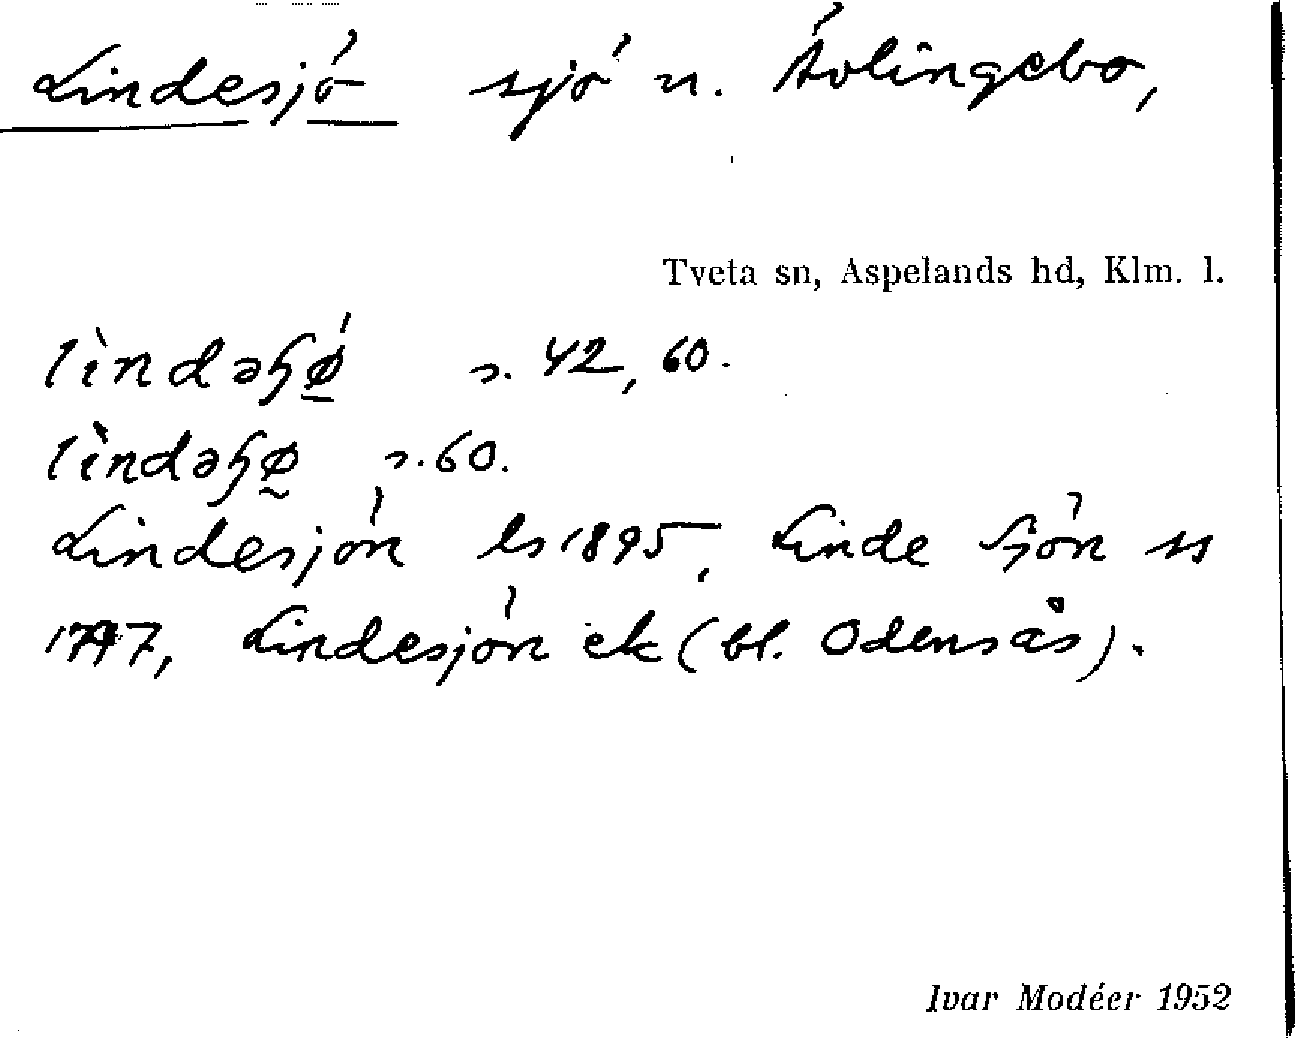 Lindesjö sjö n. Åvlingebo,
Tveta sn, Aspelands hd, Klm. l.
lìndəɧǿ̠ s. 42, 60.
lìndəɧø̰ s. 60.
Lindesjön ls 1895, Linde Sjön ss
1797, Lindesjön ek (bl. Odensås).
Ivar Modéer 1952